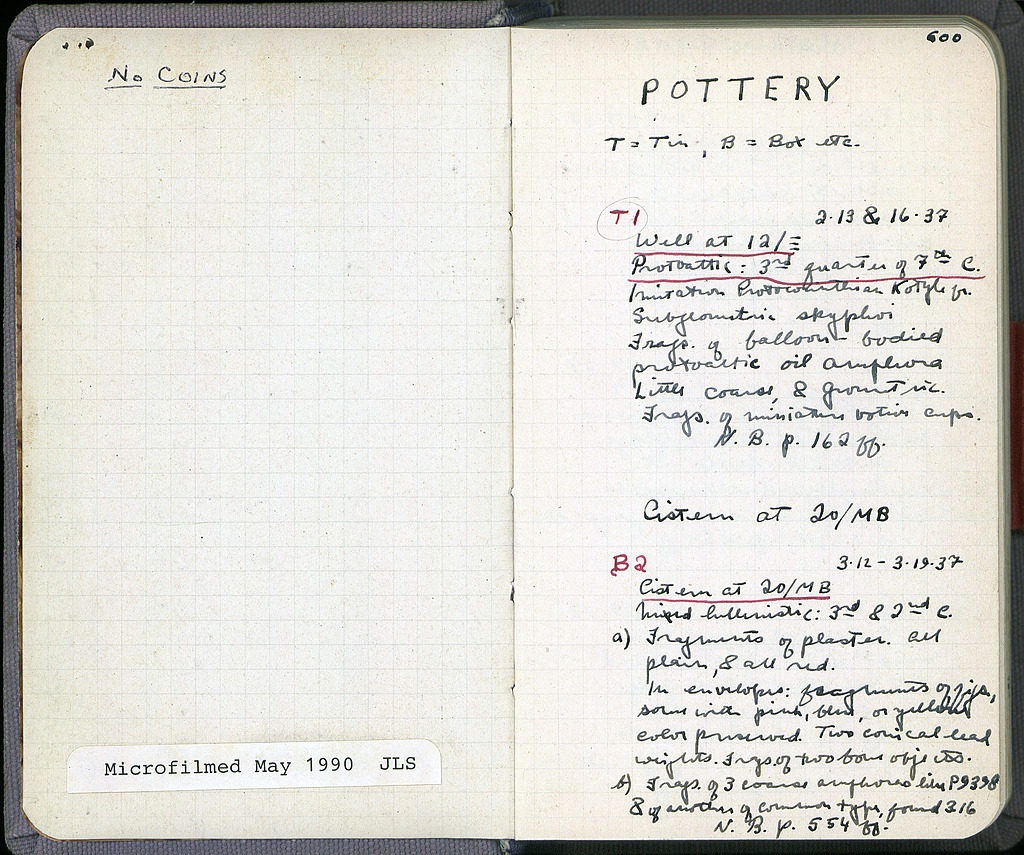 No Coins
Microfilmed May 1990 JLS
600
POTTERY
T = Tin, B = Box etc.
T1 2·13 & 16·37
Well at 12/Ξ
Protoattic: 3rd quarter of 7th C.
Imitation Protocorinthian Kotyle fr.
Subgeometric skyphoi
Frags. of balloon-bodied
protoattic oil amphora
Little coarse, & geometric.
Frags. of miniature votive cups.
N. B. p. 162 ff.
Cistern at 20/MB
B2 3·12 - 3·19·37
Cistern at 20/MB
Mixed hellenistic: 3rd & 2nd C.
a) Fragments of plaster. All
plain, & all red.
In envelopes: fragments of figs,
some with pink, blue, or yellow
color preserved. Two conical lead
weights. Frags. of two bone objects.
b) Frags. of 3 coarse amphoras like P9398
& of another of common type, found 3·16
N. B. p. 554 ff.